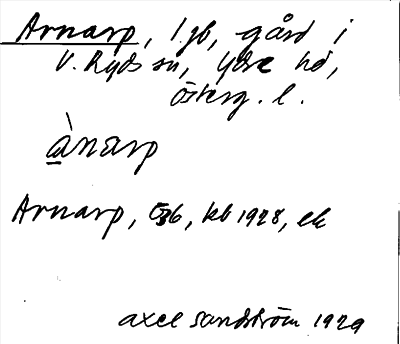 Arnarp, l.jb, gård i
V. Ryds sn, Ydre hd,
Österg. l.
ànarp
Arnarp, Ejb, kb 1928, ek
Axel Sandström 1929